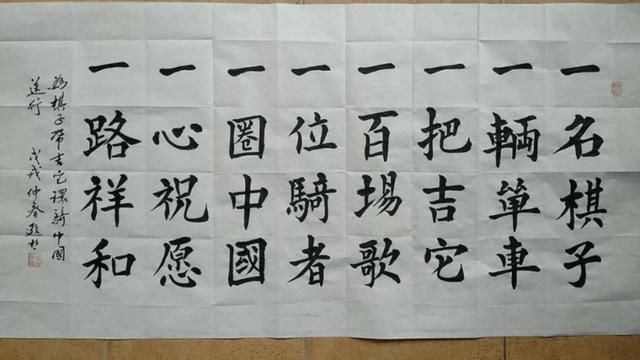 一名棋子
一輌單車
一把吉它
一百場歌
一位騎者
一圈中國
一心祝愿
一路祥和
棋子帶吉它環騎中國
送行 戊戌仲春